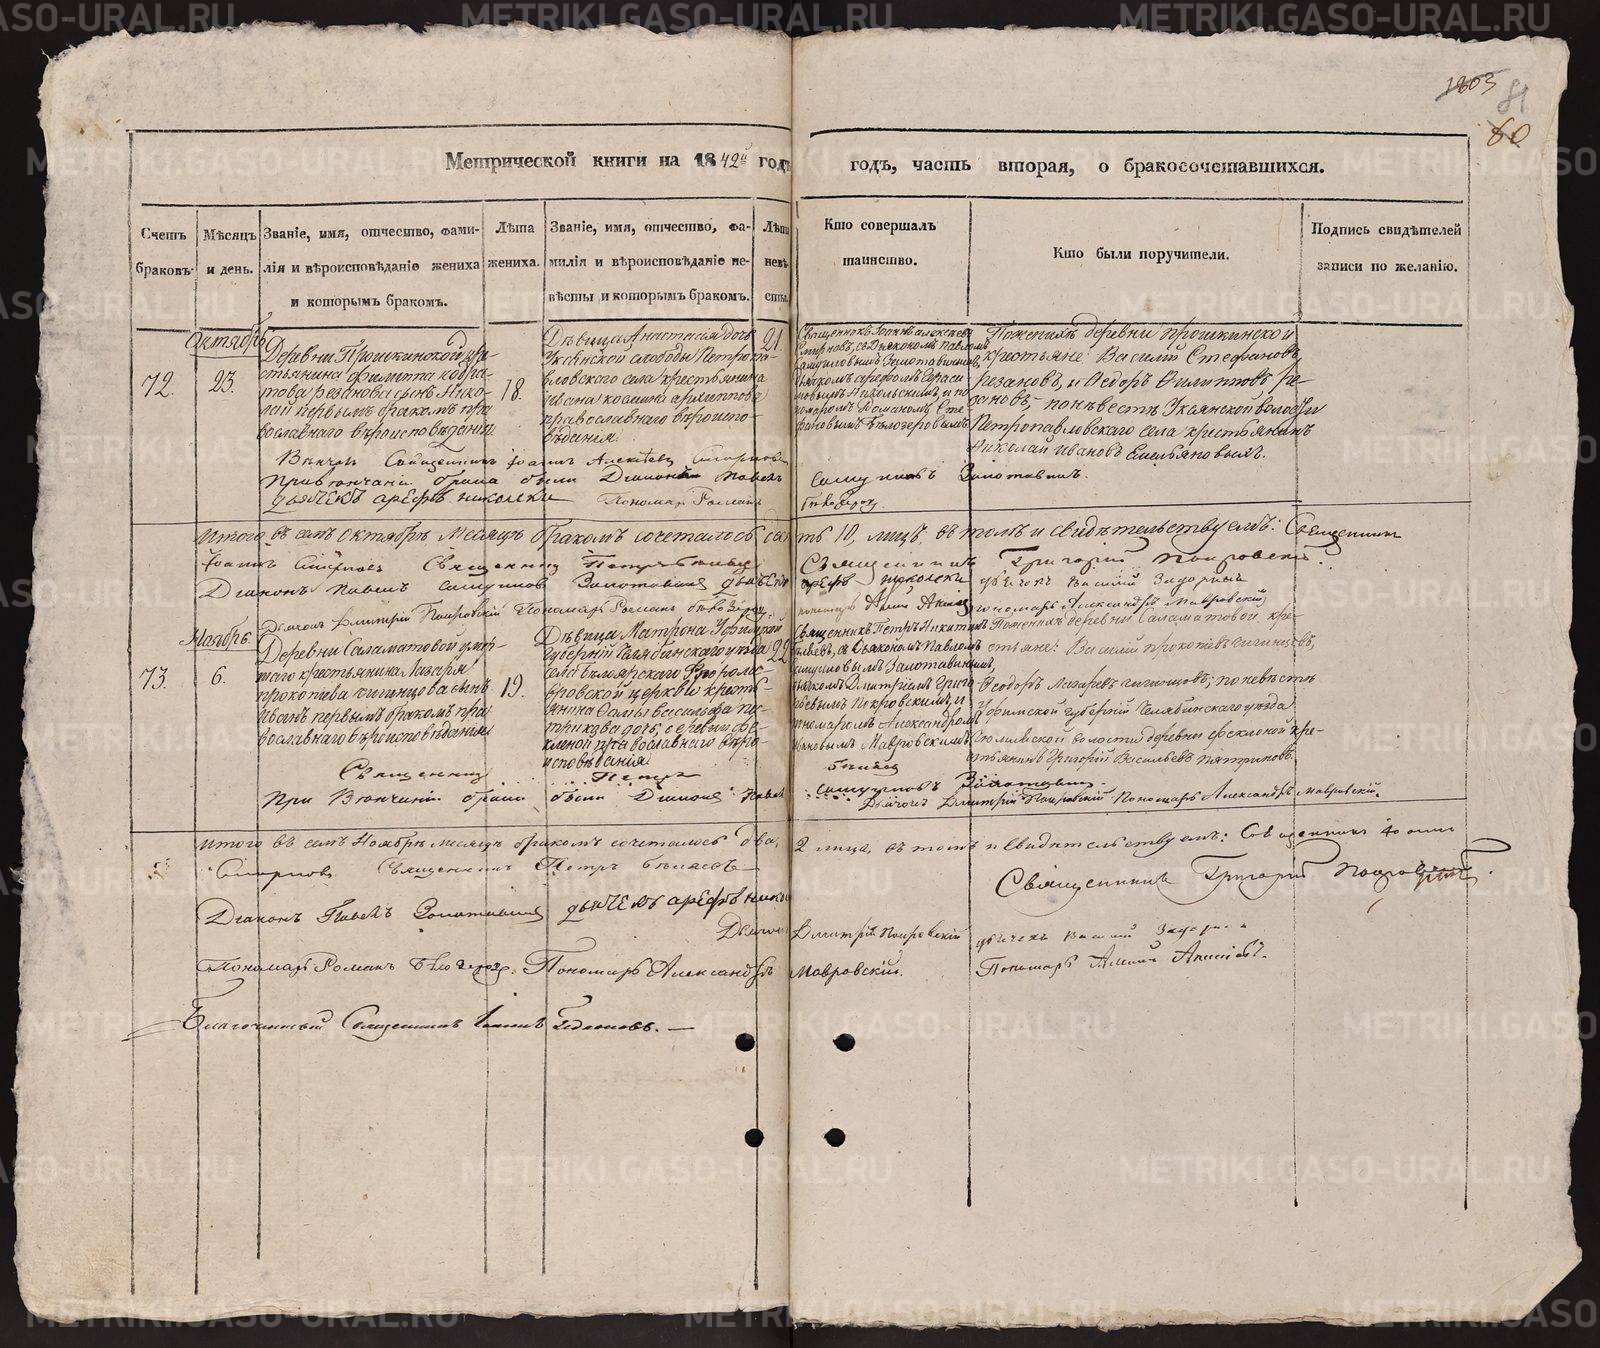 1803
81
60
Метрической книги на 1842й годъ
годъ, часть вторая, о бракосочетавшихся.
Счетъ браковъ.
Мѣсяцъ и день.
Званіе, имя, отчество, фами-
лія и вѣроисповѣданіе жениха
и которымъ бракомъ.
Лѣта жениха.
Званіе, имя, отчество, фа-
милія и вѣроисповѣданіе не-
вѣсты и которымъ бракомъ.
Лѣта невѣ-
сты.
Кто совершалъ
таинство.
Кто были поручители.
Подпись свидѣтелей
записи по желанію.
Октябрь
72.
23.
Деревни Прошкинской кре-
стьянина Филиппа
Резанова сынъ Нико-
лай первымъ бракомъ пра-
вославнаго вѣроисповѣданія
18.
Дѣвица Анастасія дочь
Уксянской слободы Петропа-
вловскаго села крестьянина
Ивана Архиппова
православнаго вѣроиспо-
вѣданія.
21.
Священникъ Іоаннъ Алексѣевъ
Смирновъ, съ Діякономъ Павломъ
Самуиловымъ Золотавинымъ,
дьячкомъ Арефомъ
Никольскимъ, и по-
номаремъ Романомъ Сте-
фановымъ Бѣлогоровымъ
По женихѣ деревни Прошкинской
крестьяне: Василій Стефановъ
Резановъ, и Ѳедоръ Филипповъ Ре-
зановъ; по невѣстѣ Уксянской волости
Петропавловскаго села крестьянинъ
Николай Ивановъ Емельяновыхъ.
Вѣнчалъ Священникъ Іоаннъ Алексѣевъ Смирновъ
При вѣнчаніи брака были Діаконъ Павелъ Самуиловъ Золотавинъ.
дьячекъ Арефъ Николски Пономарь Романъ Бѣлогоровъ
Итого въ семъ Октябрѣ месяцѣ бракомъ сочеталось 10, лицъ, въ томъ и свидѣтельствуемъ: Священникъ
Іоаннъ Смирновъ Священникъ Петръ Бѣляевъ Священникъ Григорій Покровскій.
Діаконъ Павелъ Самуиловъ Золотавинъ дьячекъ Арефъ Николски дьячекъ Василій Задоринъ
Дьячокъ Димитрій Покровскій Пономарь Романъ Бѣлогоровъ Пономарь Александръ Мавровскій
Ноябрь.
73.
6.
Деревни Саламатовой умер-
шаго крестьянина Лазаря
Прокопіева Чигинцова сынъ
Иванъ первымъ бракомъ пра-
вославнаго вѣроисповѣданія
19.
Дѣвица Матрона Уфимской
губерніи Челябинскаго уѣзда
села Бѣлоярскаго Флоролав-
ровской церкви кресть-
янина Ѳомы Васильева Пя-
трикова дочь, деревни Фе-
клиной православнаго вѣро-
исповѣданія
22
Священникъ Петръ Никитинъ
Бѣляевъ, съ Діякономъ Павломъ
Самуиловымъ Золотавинымъ,
дьячкомъ Димитріемъ Григо-
рьевымъ Покровскимъ, и
пономаремъ Александромъ
Ивановымъ Мавровскимъ
По женихѣ деревни Саламатовой кре-
стьяне: Василій Прокопіевъ Чигинцовъ,
Ѳеодоръ Лазаревъ Чигинцовъ; по невѣстѣ
Уфимской губерніи Челябинскаго уѣзда
волости деревни Феклиной кре-
стьянинъ Григорій Васильевъ Пятриковъ.
Священникъ Петръ Бѣляевъ
При вѣнчаніи брака были Діаконъ Павелъ Самуиловъ Золотавинъ.
Дьячокъ Димитрій Покровскій Пономарь Александръ Мавровскій.
Итого въ семъ Ноябрѣ месяцѣ бракомъ сочеталось два, 2 лица, въ томъ и свидѣтельствуемъ: Священникъ Іоаннъ
Смирновъ Священникъ Петръ Бѣляевъ Священникъ Григорій Покровскій.
Діаконъ Павелъ Золотавинъ дьячекъ Арефъ
Дьячокъ Димитрій Покровскій дьячекъ Василій Задоринъ
Пономарь Романъ Бѣлогоровъ. Пономарь Александръ Мавровскій.
Благочинный Священникъ Іоаннъ
METRIKI.GASO-URAL.RU